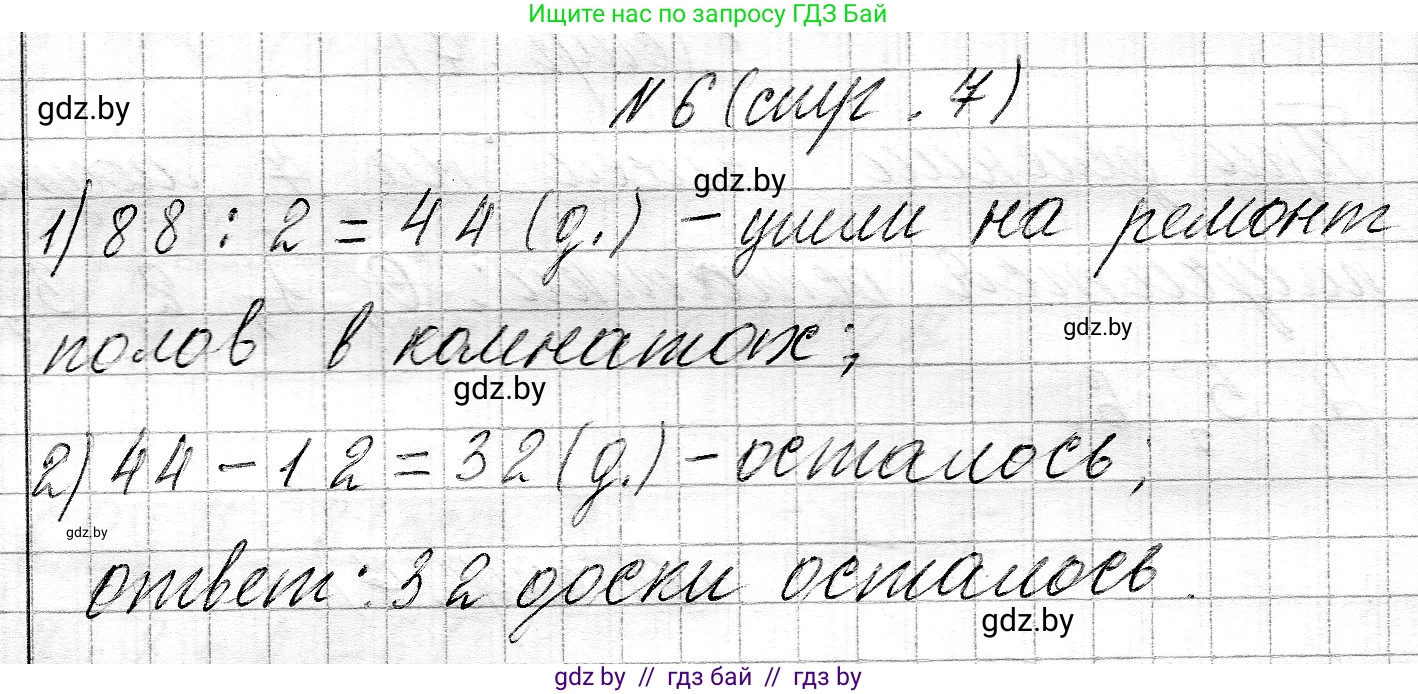 Ищите нас по запросу ГДЗ Бай
№ 6 (стр. 7)
gdz.by
gdz.by
1) 88 : 2 = 44 (д.) – ушли на ремонт
полов в комнатах;
gdz.by
gdz.by
2) 44 – 12 = 32 (д.) – осталось;
gdz.by
ответ: 32 доски осталось.
gdz.by
gdz.by // гдз бай // гдз by